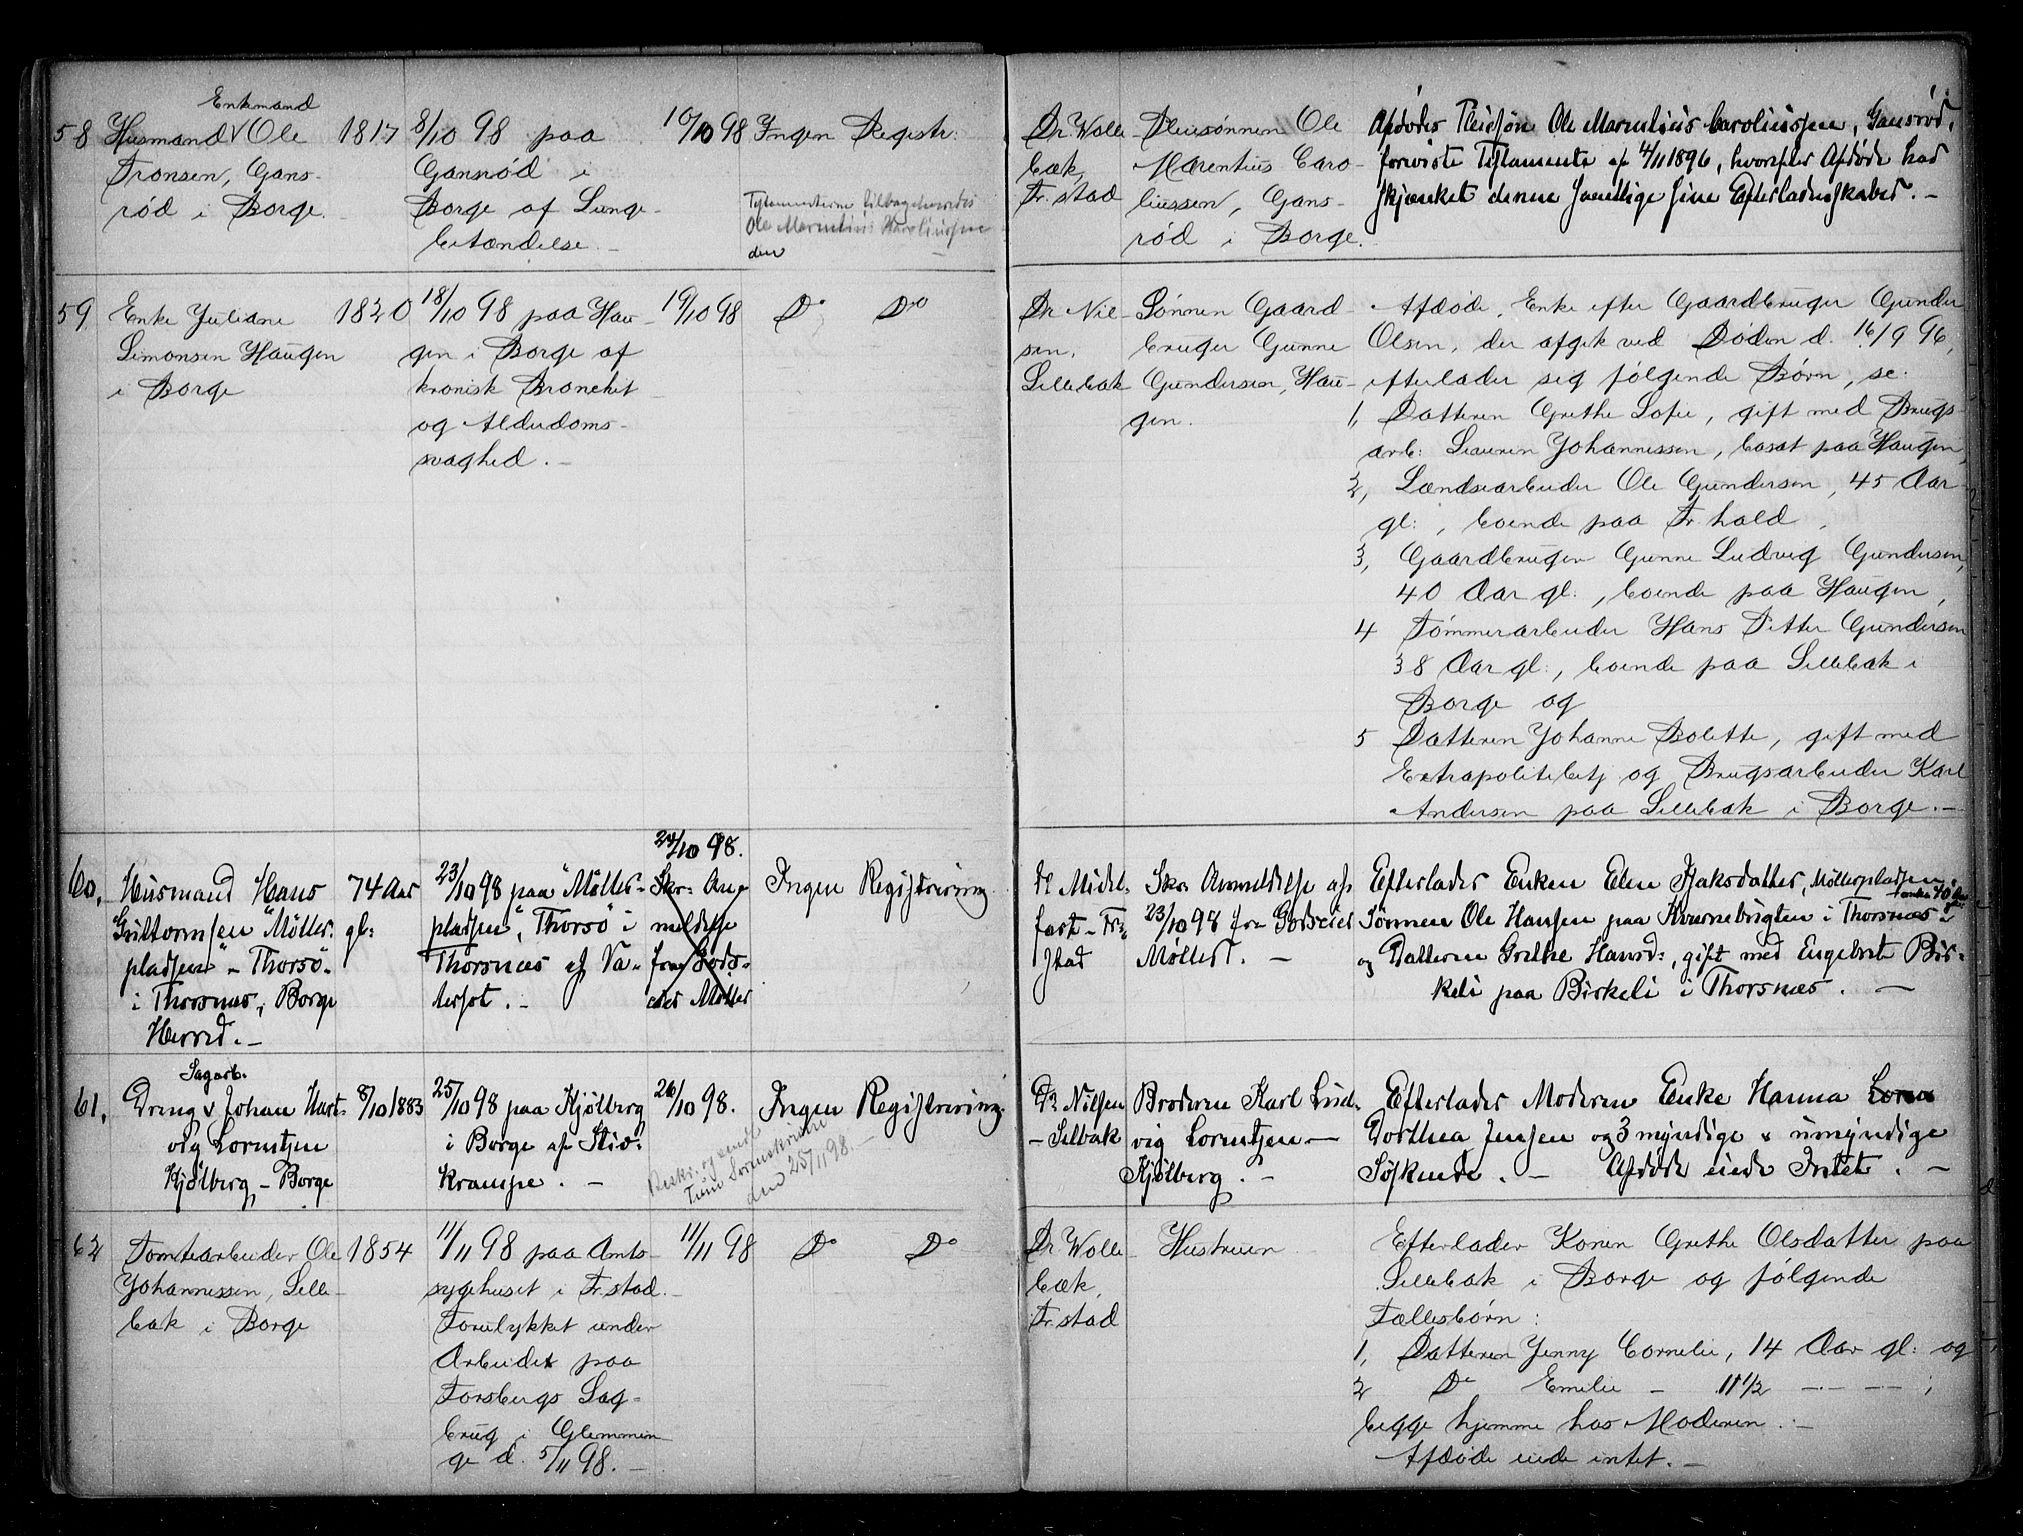 Enkemand
58 Husmand v Ole
Tronsen, Gans-
rød i Borge.
1817
8/10 98 paa
Gansrød i
Borge af Lunge-
betændelse. -
10/10 98
Ingen Registr:
Testamenterne tilbagesendes
Ole Marentius Karoliussen
den
Dr Wolle-
bæk,
Fr.stad
Pleiesønnen Ole
Marentius Caro-
liussen, Gans-
rød i Borge.
Afdødes Pleiesøn Ole Marentius Caroliussen, Gansrød,
foreviste Testamente af 4/11 1896, hvorefter Afdøde had
skjænket denne samtlige sine Efterladenskaber. -
59 Enke Juliane
Simonsen Haugen
i Borge
1820
18/10 98 paa Hau-
gen i Borge af
kronisk Bronchit
og Alderdoms-
svaghed. -
19/10 98
Do Do
Dr Niel-
sen,
Sellebak
Sønnen Gaard-
bruger Gunne
Gundersen, Hau-
gen.
Afdøde, Enke efter Gaardbruger Gunder
Olsen, der afgik ved Døden d. 16/9 96,
efterlader sig følgende Børn, se:
1, Datteren Grethe Sofie, gift med Brugs-
arb: Lauren Johannessen, bosat paa Haugen,
2, Lændsearbeider Ole Gundersen, 45 Aar
gl:, boende paa Fr.hald,
3, Gaardbruger Gunne Ludvig Gundersen,
40 Aar gl:, boende paa Haugen,
4 Tømmerarbeider Hans Petter Gundersen
38 Aar gl:, boende paa Sellebak i
Borge og
5 Datteren Johanne Bolette, gift med
Extrapolitibetj og Brugsarbeider Karl
Andersen paa Sellebak i Borge. -
60, Husmand Hans
Guttormsen "Møller-
pladsen" - Thorsø -
i Thorsnæs, Borge
Herred. -
74 Aar
gl:
23/10 98 paa "Møller-
pladsen", Thorsø i
Thorsnæs af Va-
tersot. -
24/10 98.
Skr: An-
meldelse
fra Gods-
eier Møller
Ingen Registrering
Dr Midel-
fart - Fr:
stad
Skr: Anmeldelse af
23/10 98 fra Godseier
Møller. -
Efterlader Enken Elen Isaksdatter, Møllerpladsen,
Sønnen Ole Hansen paa Kvernebrigten i Thorsnæs
og Datteren Grethe Hansd:, gift med Engebret Bir-
keli paa Birkeli i Thorsnæs. -
Sagarb.
61, Dreng v Johan Hart-
vig Lorentzen
Kjølberg, - Borge
8/10 1883
25/10 98 paa Kjølberg
i Borge af Stiv-
krampe. -
26/10 98.
Ingen Registrering.
Beskr. og sendt
Tune Sorenskriveri
den 25/11 98. -
Dr Nilsen
- Selbak
Broderen Karl Lud-
vig Lorentzen -
Kjølberg. -
Efterlader Moderen Enke Hanna
Dorthea Jensen og 3 myndige & umyndige
Søskende. - Afdøde eiede Intet. -
62 Tomtearbeider Ole
Johannessen, Selle-
bak i Borge
1854
11/11 98 paa Amts-
sygehuset i Fr.stad.
Forulykket under
Arbeidet paa
Forsbergs Sag-
brug i Glemmin-
ge d. 5/11 98. -
11/11 98
Do Do
Dr Wolle-
bæk,
Fr.stad
Hustruen
Efterlader Konen Grethe Olsdatter paa
Sellebak i Borge og følgende
Fællesbørn:
1, Datteren Jenny Cornelie, 14 Aar gl: og
2 Do Emilie - 11 1/2 - - - - ;
begge hjemme hos Moderen. -
Afdøde eiede intet. -